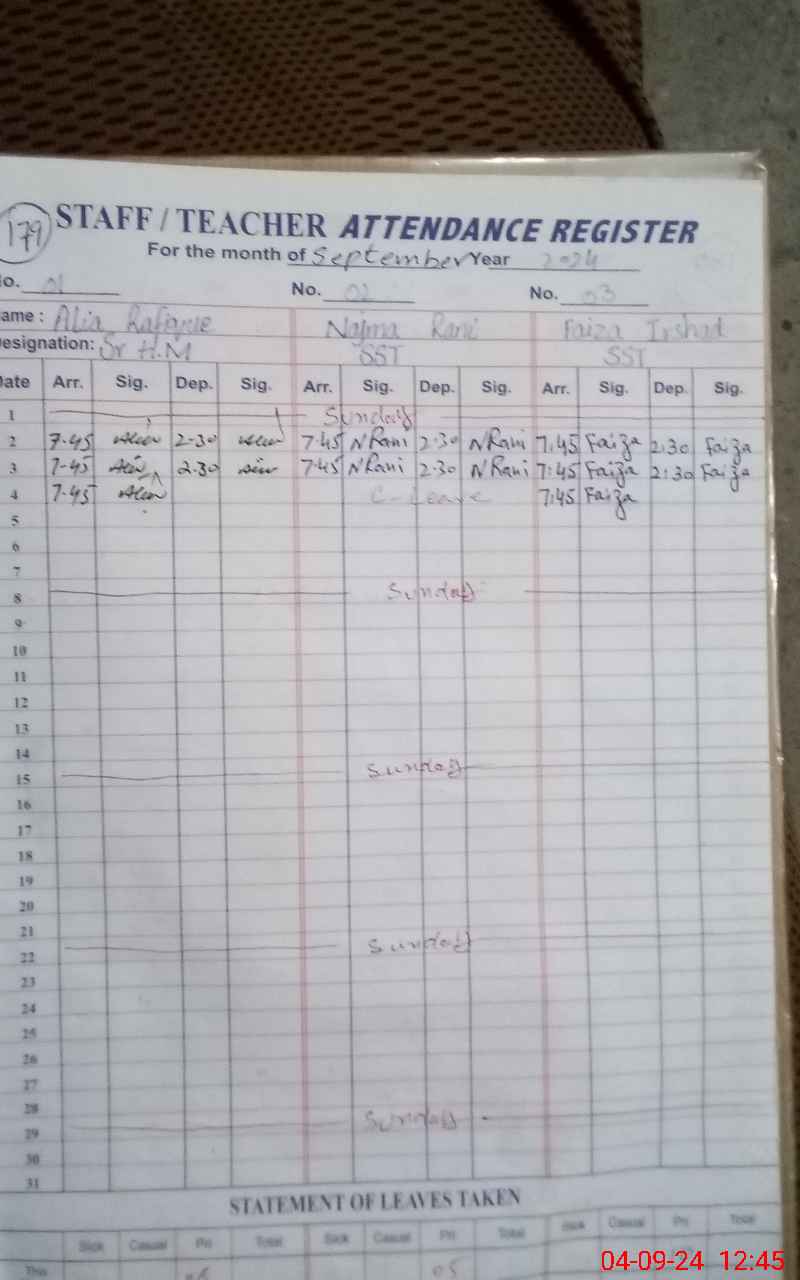 179
STAFF / TEACHER ATTENDANCE REGISTER
For the month of September Year 2024
No. 01 No. 02 No. 03
ame : Alia Rafique Najma Rani Faiza Irshad
esignation: Sr H.M SST SST
Date Arr. Sig. Dep. Sig. Arr. Sig. Dep. Sig. Arr. Sig. Dep. Sig.
1 Sunday
2 7-45 2-30 7-45 N Rani 2-30 N Rani 7:45 Faiza 2:30 Faiza
3 7-45 2.30 7-45 N Rani 2-30 N Rani 7:45 Faiza 2:30 Faiza
4 7-45 C-Leave 7:45 Faiza
5
6
7
8 Sunday
9
10
11
12
13
14
15 Sunday
16
17
18
19
20
21
22 Sunday
23
24
25
26
27
28
29 Sunday
30
31
STATEMENT OF LEAVES TAKEN
Sick Casual Pri Total Sick Casual Pri Total Sick Casual Pri Total
This 05
04-09-24 12:45